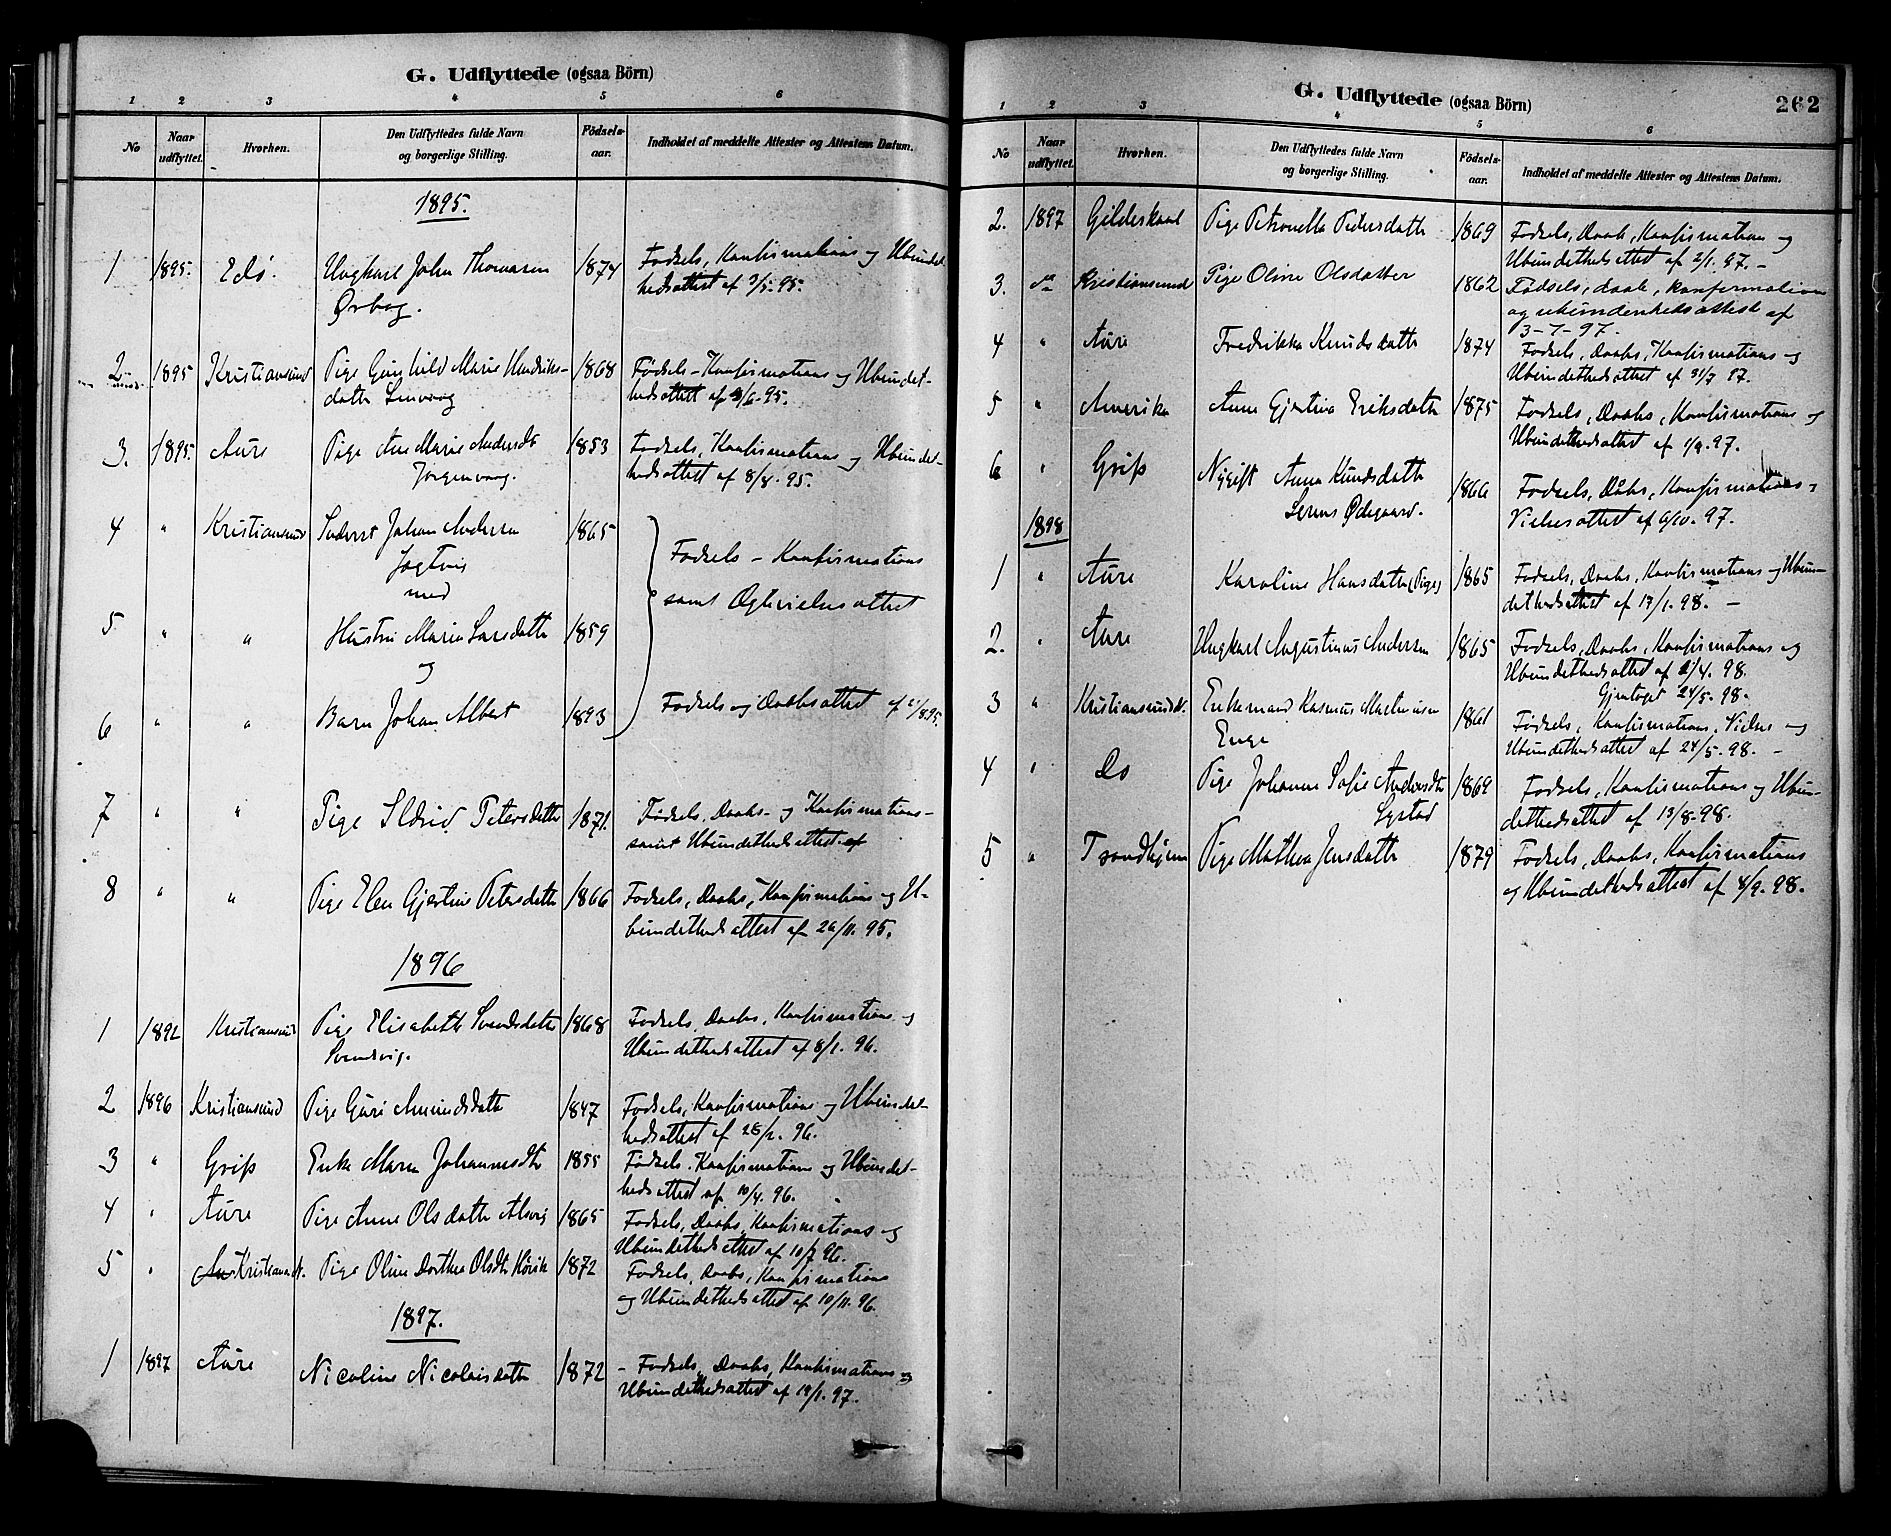 G. Udflyttede (ogsaa Börn)
1 2 3 4 5 6
No Naar udflyttet. Hvorhen. Den Udflyttedes fulde Navn og borgerlige Stilling. Födsels-aar. Indholdet af meddelte Attester og Attestens Datum.
1895.
1 1895. Edø. Ungkarl John Thomassen 1874 Fødsels, Konfirmations og Ubundet-
Ørbog. hedsattest af 3/5 95.
2 1895 Kristiansund Pige Gunhild Marie Hendriks- 1868 Fødsels- Konfirmations og Ubundet-
datter hedsattest af 3/6. 95.
3. 1895. Aure Pige Ane Marie Andersdt 1853 Fødsels, Konfirmations og Ubundet-
Jørgenvaag. hedsattest af 8/8. 95.
4 " Kristiansund Johan Andersen 1865 Fødsels- Konfirmations
Jøgtvig
med samt Ægtevielsesattest
5 " " Hustru Maria Larsdatter 1859
og
6 " " Barn Johan Albert 1893 Fødsels og Daabsattest af
7 " " Pige Sldrid Petersdatter 1871. Fødsels, Daabs- og Konfirmations-
samt Ubundethedsattest af
8 " " Pige Elen Gjertine Petersdatter 1866 Fødsels, Daabs, Konfirmations og U-
bundethedsattest af 26/11. 95.
1896
1 1892 Kristiansund Pige Elisabeth Svendsdatter 1868 Fødsels, Daabs, Konfirmations og
Svendsvig. Ubundethedsattest af 8/1. 96.
2 1896 Kristiansund Pige Guri Amundsdatter 1847 Fødsels, Konfirmations og Ubundet-
hedsattest af 28/2. 96.
3 " Grip Enke Maren Johannesdtr 1855 Fødsels. Konfirmations og Ubundet-
hedsattest af 10/4. 96.
4 " Aure Pige Anne Olsdatter Alsvig 1865 Fødsels, Daabs, Konfirmations og
Ubundethedsattest af 10/7 96.
5 " Au Kristiansund. Pige Oline Dorthea Olsdtr 1872 Fødsels, Daabs, Konfirmations
og Ubundethedsattest af 10/11. 96.
1897.
1 1897 Aure Nicoline Nicolaisdatter 1872 - Fødsels, Daabs, Konfirmations og
Ubundethedsattest af 19/1. 97.
G. Udflyttede (ogsaa Börn) 262
1 2 3 4 5 6
No Naar udflyttet. Hvorhen. Den Udflyttedes fulde Navn og borgerlige Stilling. Födsels-aar. Indholdet af meddelte Attester og Attestens Datum.
2. 1897 Gilderskaal Pige Petronella Pedersdatter 1869 Fødsels, Daab, Konfirmations og
Ubundethedsattest af 2/1. 97. -
3. do Kristiansund Pige Oline Olsdatter 1862 Fødsels, daab, konfirmations
og ubundenhedsattest af
3-7-97.
4 " Aure Fredrikka Knudsdatter 1874 Fødsels, Daabs, Konfirmations og
Ubundethedsattest af 31/7 97.
5 " Amerika Anne Gjertina Eriksdatter 1875 Fødsels, Daabs, Konfirmations og
Ubundethedsattest af 1/9. 97.
6 " Grip Nygift Anna Knudsdatter 1866 Fødsels, Dåbs, Konfirmations,
Ødegaard. Vielsesattest af 6/10. 97.
1898
1 " Aure Karoline Hansdatter (Pige) 1865 Fødsels, Daabs, Konfirmations og Ubun-
dethedsattest af 19/1. 98. -
2. " Aure Ungkarl Augustinus Andersen 1865 Fødsels, Daabs, Konfirmations og
Ubundethedsattest af 21/4. 98.
Gjentaget 24/5. 98.
3 " Kristiansund N. Enkemand Rasmus Martinusen 1861 Fødsels, Konfirmations, Vielses og
Enge Ubundethedsattest af 24/5. 98. -
4 " Do Pige Johanne Sofie Andersdtr 1869 Fødsels, Konfirmations og Ubun-
dethedsattest af 13/8. 98.
5 " Trondhjem Pige Mathea Jensdatter 1879 Fødsels, Daabs, Konfirmations
og Ubundethedsattest af 8/9. 98.